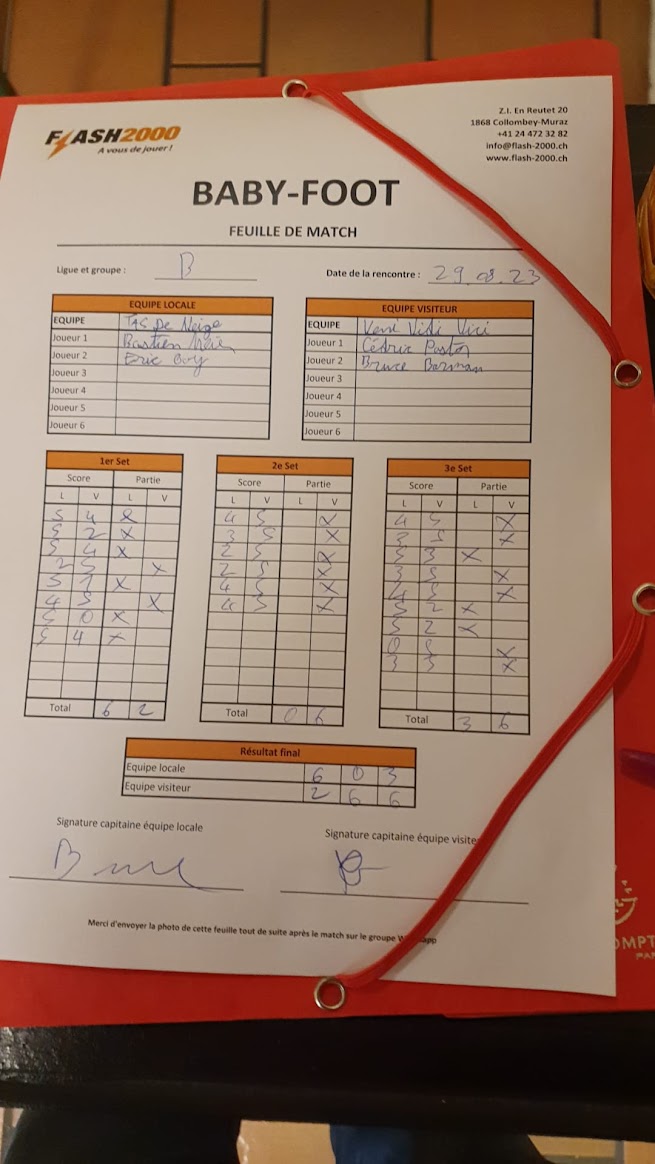 FLASH2000
A vous de jouer !
Z.I. En Reutet 20
1868 Collombey-Muraz
+41 24 472 32 82
info@flash-2000.ch
www.flash-2000.ch
BABY-FOOT
FEUILLE DE MATCH
Ligue et groupe : B
Date de la rencontre : 29.08.23
EQUIPE LOCALE
EQUIPE TAS De Neige
Joueur 1 Bastien
Joueur 2 Eric
Joueur 3
Joueur 4
Joueur 5
Joueur 6
EQUIPE VISITEUR
EQUIPE Veni Vidi Vici
Joueur 1 Cédric Pastor
Joueur 2 Bruce Barman
Joueur 3
Joueur 4
Joueur 5
Joueur 6
1er Set
Score Partie
L V L V
5 4 X
5 2 X
5 4 X
2 5 X
5 1 X
4 5 X
5 0 X
5 4 X
Total 6 2
2e Set
Score Partie
L V L V
4 5 X
3 5 X
2 5 X
2 5 X
4 5 X
4 5 X
Total 0 6
3e Set
Score Partie
L V L V
4 5 X
3 5 X
5 3 X
3 5 X
4 5 X
5 2 X
5 2 X
0 5 X
3 5 X
Total 3 6
Résultat final
Equipe locale 6 0 3
Equipe visiteur 2 6 6
Signature capitaine équipe locale
Signature capitaine équipe visite
Merci d'envoyer la photo de cette feuille tout de suite après le match sur le groupe W app